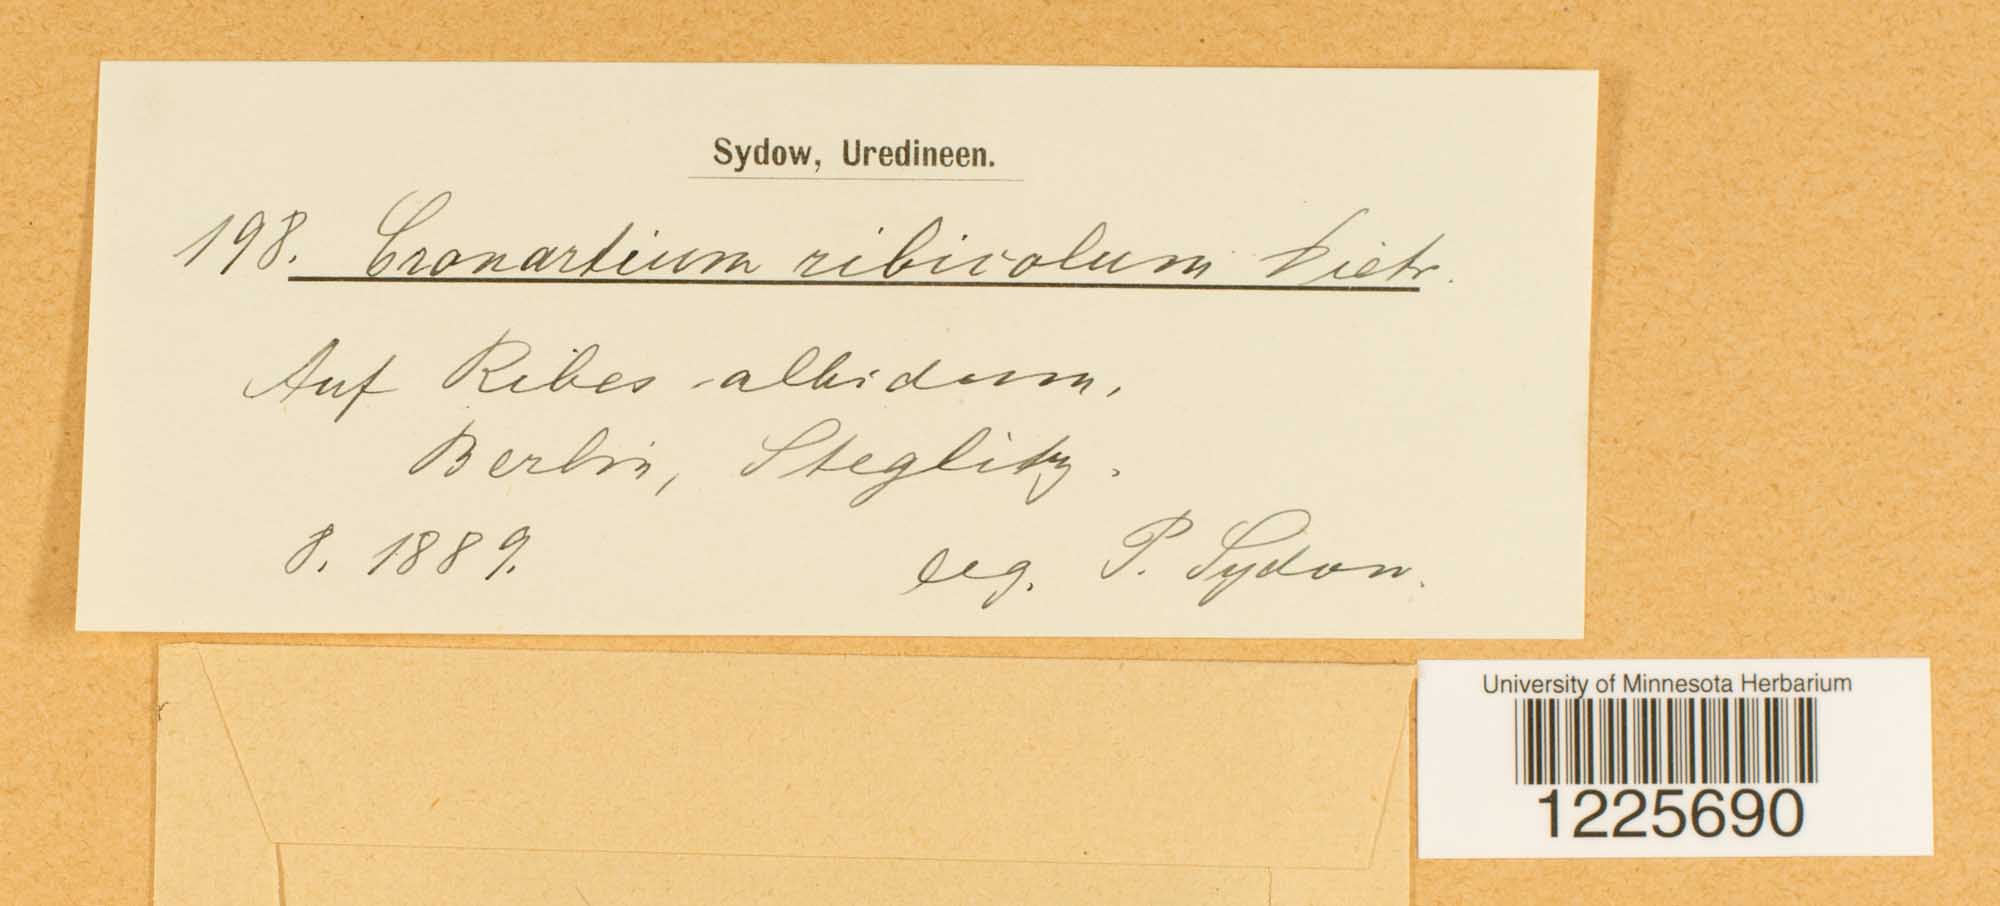 Sydow, Uredineen.
198. Cronartium ribicolum Dietr.
Auf Ribes albidum,
Berlin, Steglitz.
8. 1889.
leg. P. Sydow.
University of Minnesota Herbarium
1225690